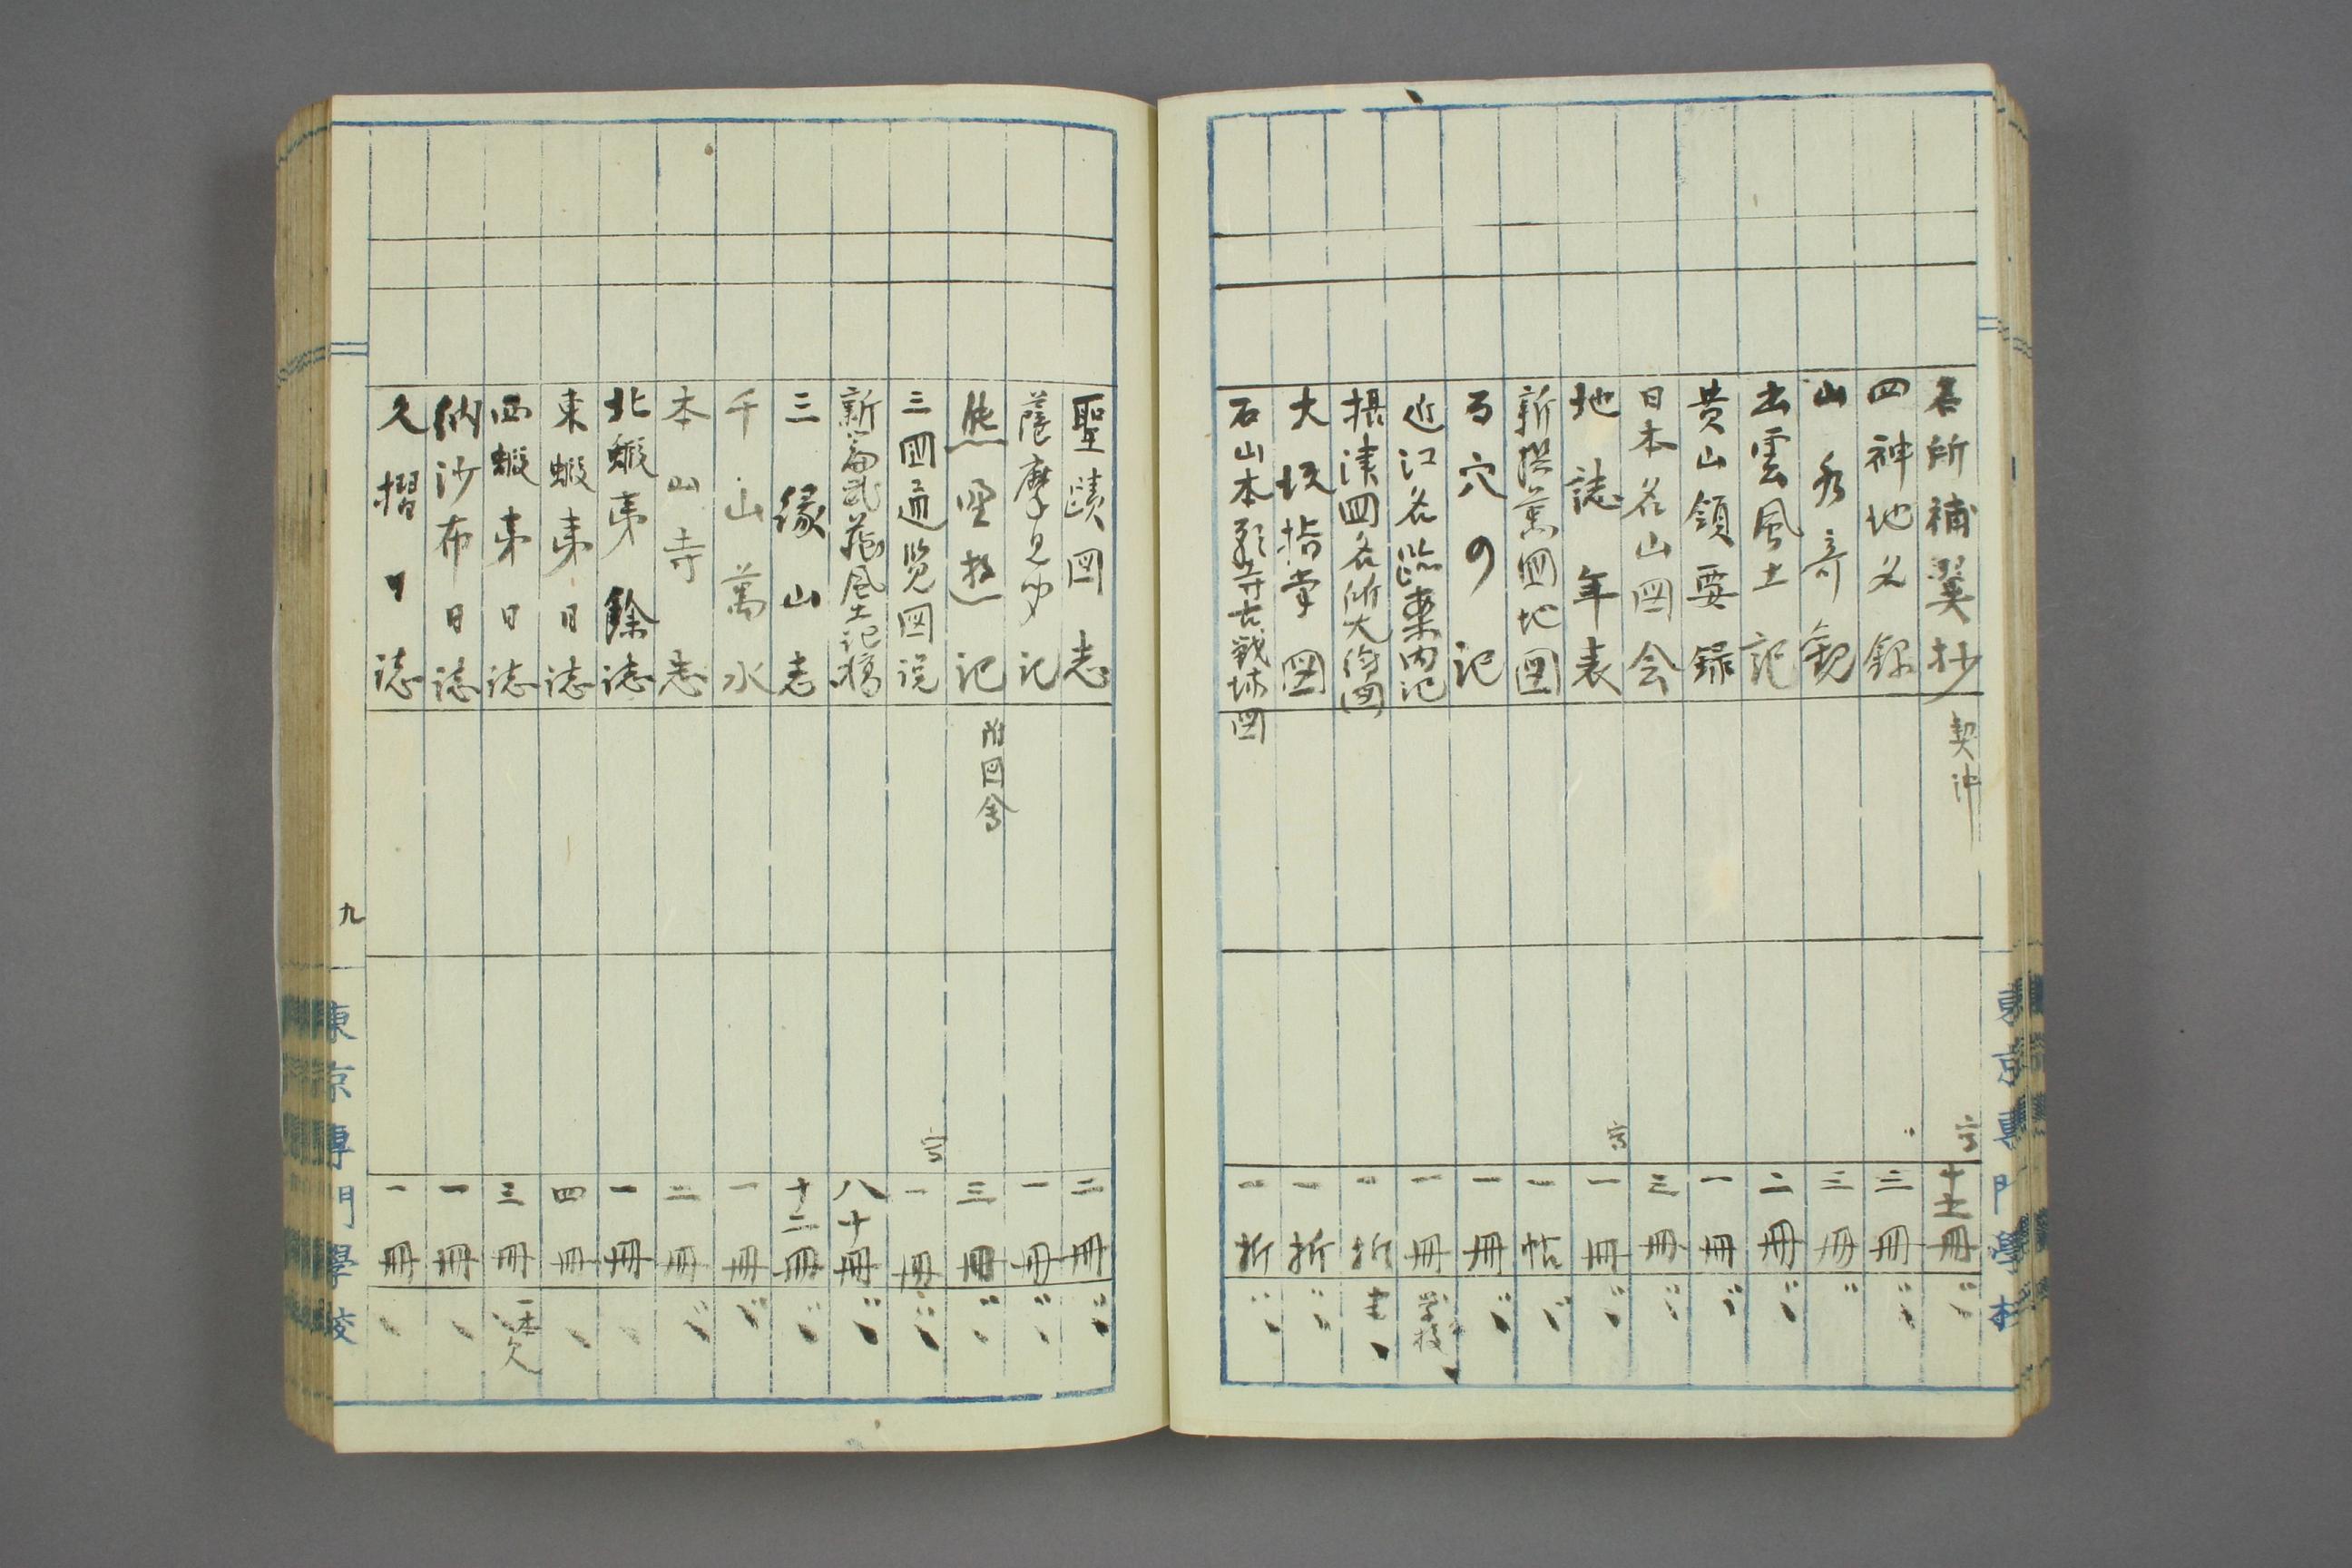 名所補翼抄 契沖 写 十七冊
四神地名録 三冊
山水奇観 三冊
出雲風土記 二冊
黄山領要録 一冊
日本名山図会 三冊
地誌年表 写 一冊
新撰蕙図地図 一帖
百穴の記 一冊
近江名跡案内記 一冊
摂津国名所大絵図 一折
大坂指掌図 一折
石山本願寺古戦場図 一折
東京専門学校
聖蹟図志 二冊
薩摩見聞記 一冊
熊野遊記 附図会 三冊
三国通覧図説 写 一冊
新篇武蔵風土記稿 八十冊
三縁山志 十二冊
千山萬水 一冊
本山寺志 二冊
北蝦夷餘誌 一冊
東蝦夷日誌 四冊
西蝦夷日誌 三冊 一本欠
納沙布日誌 一冊
久摺日誌 一冊
九
東京専門學校